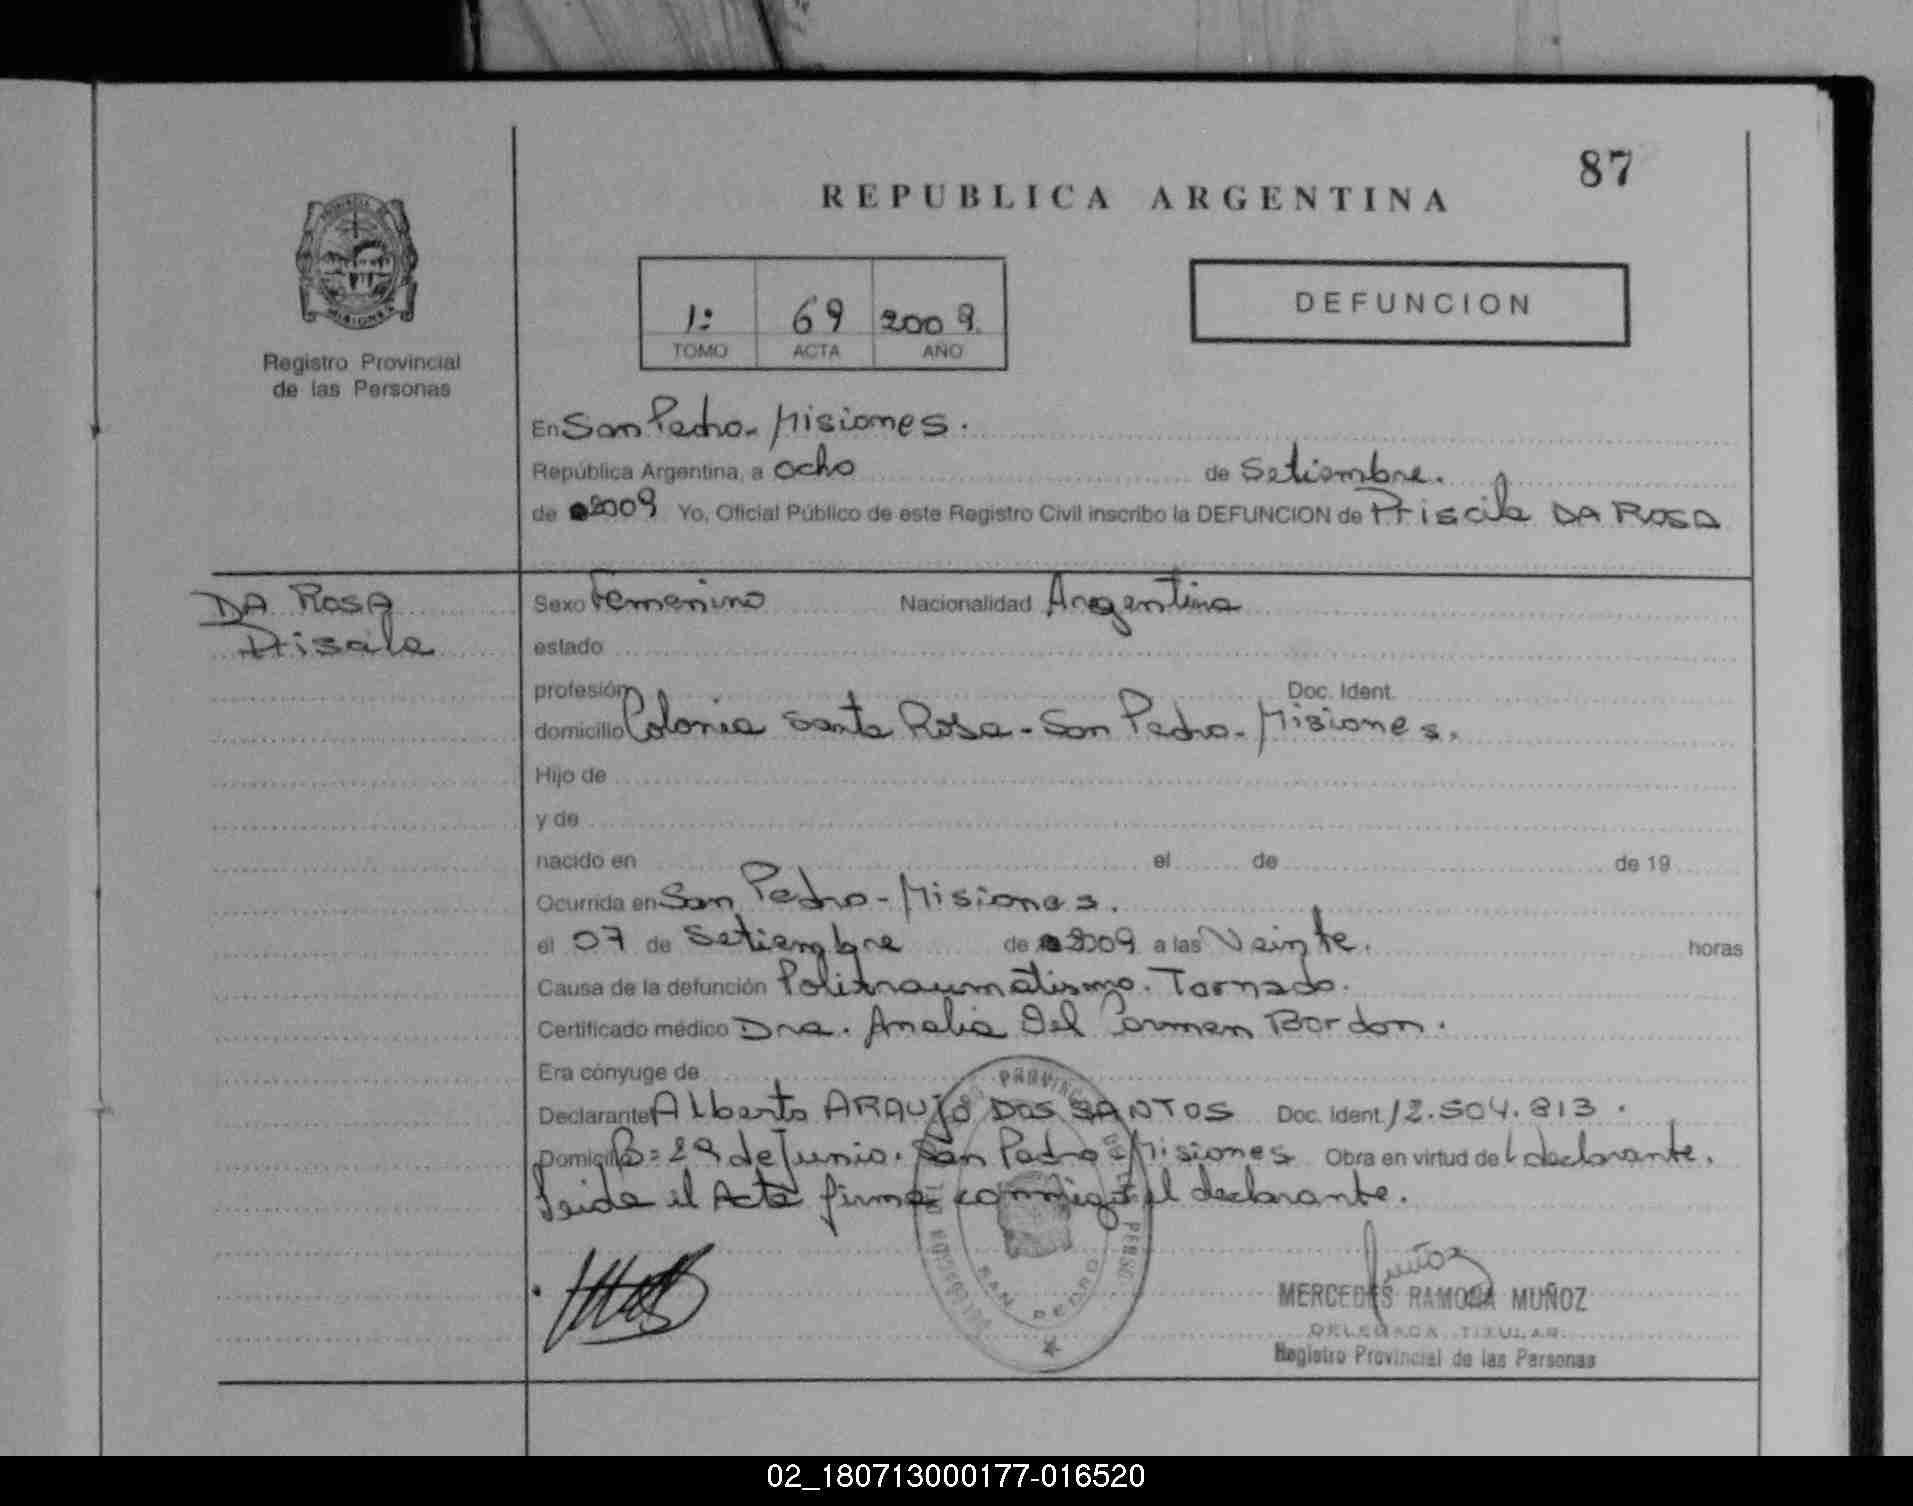 87
REPUBLICA ARGENTINA
PROVINCIA DE
MISIONES
Registro Provincial
de las Personas
1: 69 2009.
TOMO ACTA AÑO
DEFUNCION
En San Pedro - Misiones.
República Argentina, a Ocho de Setiembre.
de 2009 Yo, Oficial Público de este Registro Civil inscribo la DEFUNCION de Priscila DA ROSA
DA ROSA
Priscila
Sexo Femenino Nacionalidad Argentina
estado
profesión Doc. Ident.
domicilio Colonia Santa Rosa - San Pedro - Misiones.
Hijo de
y de
nacido en el de de 19
Ocurrida en San Pedro - Misiones.
el 07 de Setiembre de 2009 a las Veinte. horas
Causa de la defunción Politraumatismo. Tornado.
Certificado médico Dra. Analia Del Carmen Bordon.
Era cónyuge de
Declarante Alberto ARAUJO DOS SANTOS Doc. Ident. 12.504.813.
Domicilio B= 29 de Junio. San Pedro - Misiones Obra en virtud de l declarante.
Leida el Acta firma conmigo el declarante.
SAN PEDRO
Muñoz
MERCEDES RAMONA MUÑOZ
DELEGADA TITULAR
Registro Provincial de las Personas
02_180713000177-016520